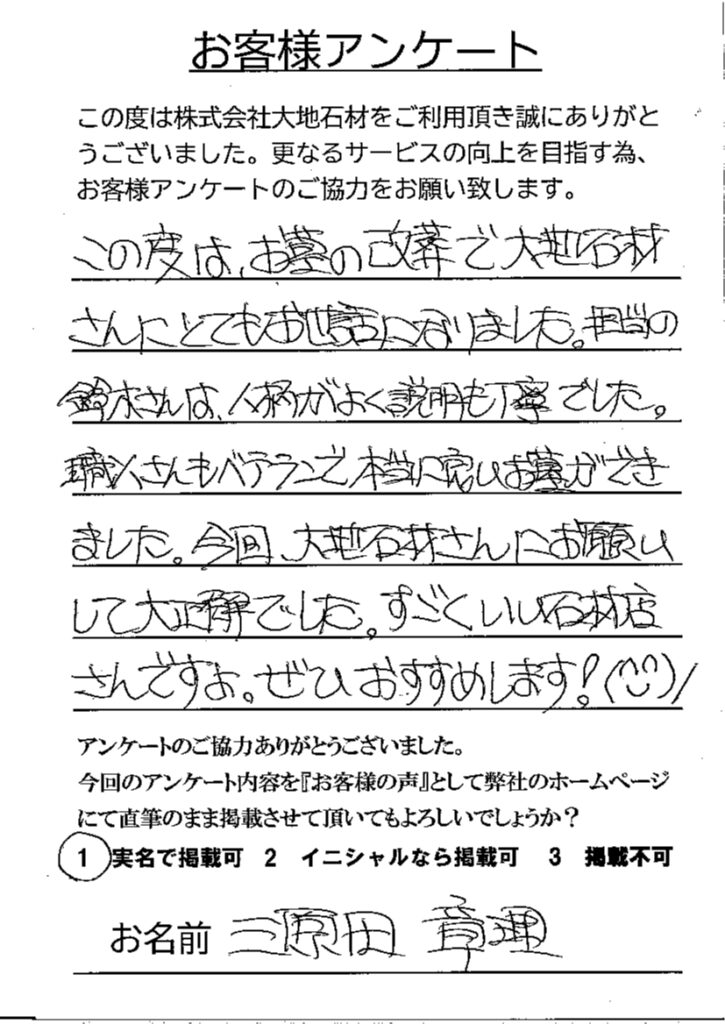 お客様アンケート
この度は株式会社大地石材をご利用頂き誠にありがと
うございました。更なるサービスの向上を目指す為、
お客様アンケートのご協力をお願い致します。
この度は、お墓の改葬で大地石材
さんにとてもお世話になりました。担当の
鈴木さんは、人柄がよく説明も丁寧でした。
職人さんもベテランで本当に良いお墓ができ
ました。今回、大地石材さんにお願い
して大正解でした。すごくいい石材店
さんですよ。ぜひおすすめします!(^U^)/
アンケートのご協力ありがとうございました。
今回のアンケート内容を『お客様の声』として弊社のホームページ
にて直筆のまま掲載させて頂いてもよろしいでしょうか?
1 実名で掲載可 2 イニシャルなら掲載可 3 掲載不可
お名前 三原田 章理